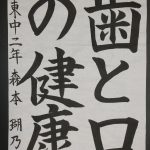 歯と口
の健康
東中二年 森本 瑚乃